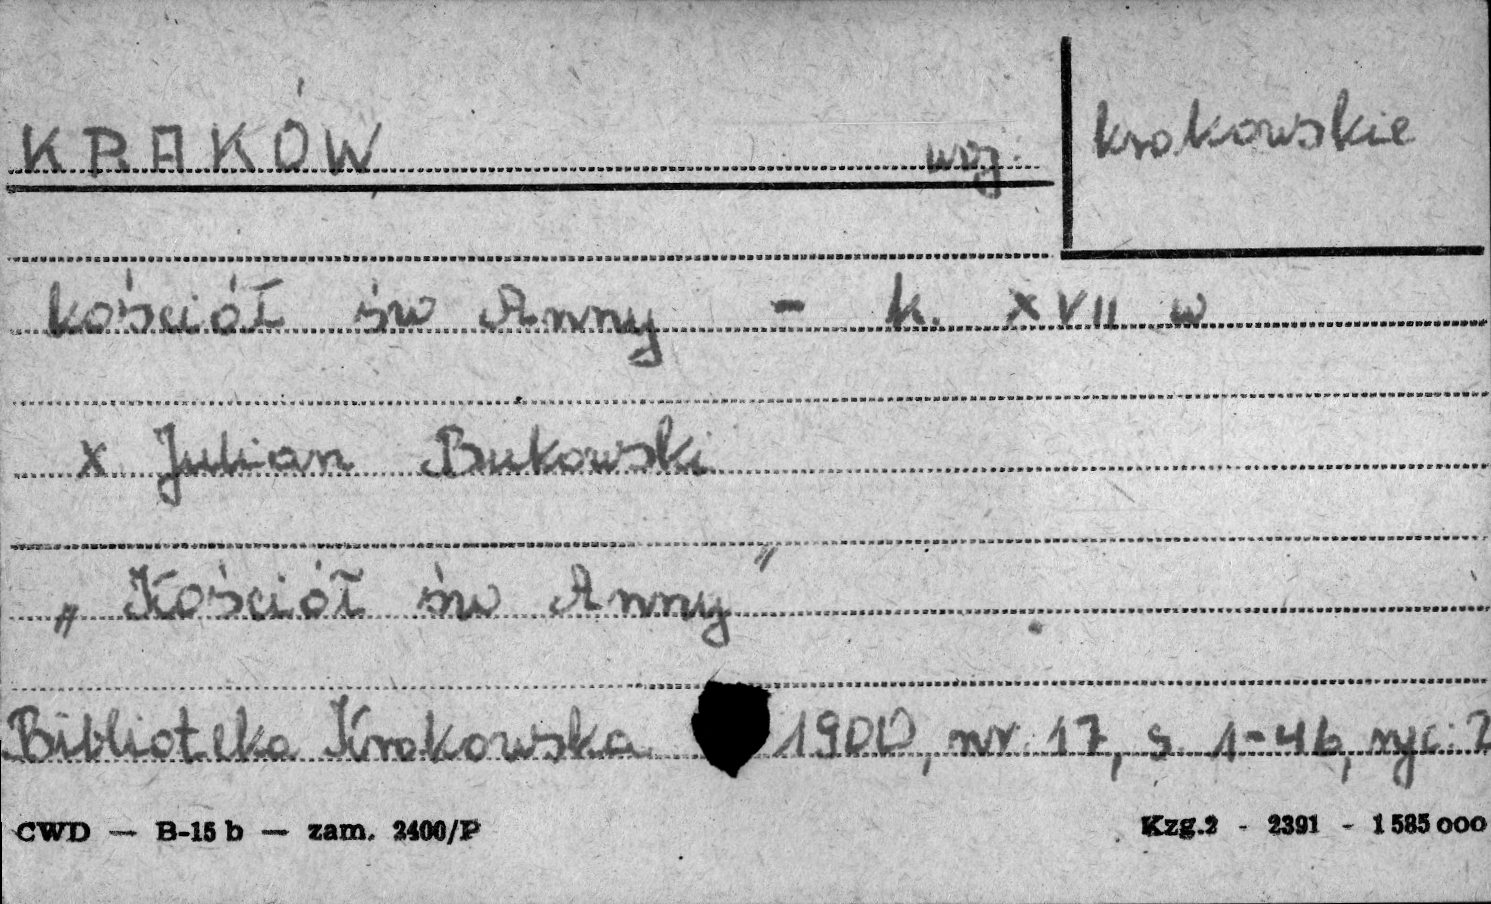 KRAKÓW woj. krakowskie
kościół św Anny - k. XVII w
x Julian Bukowski
„Kościół św Anny"
Biblioteka Krakowska 1900, nr. 17, s. 1-46, ryc: 2
CWD — B-15 b — zam. 2400/P Kzg.2 - 2391 - 1 585 000